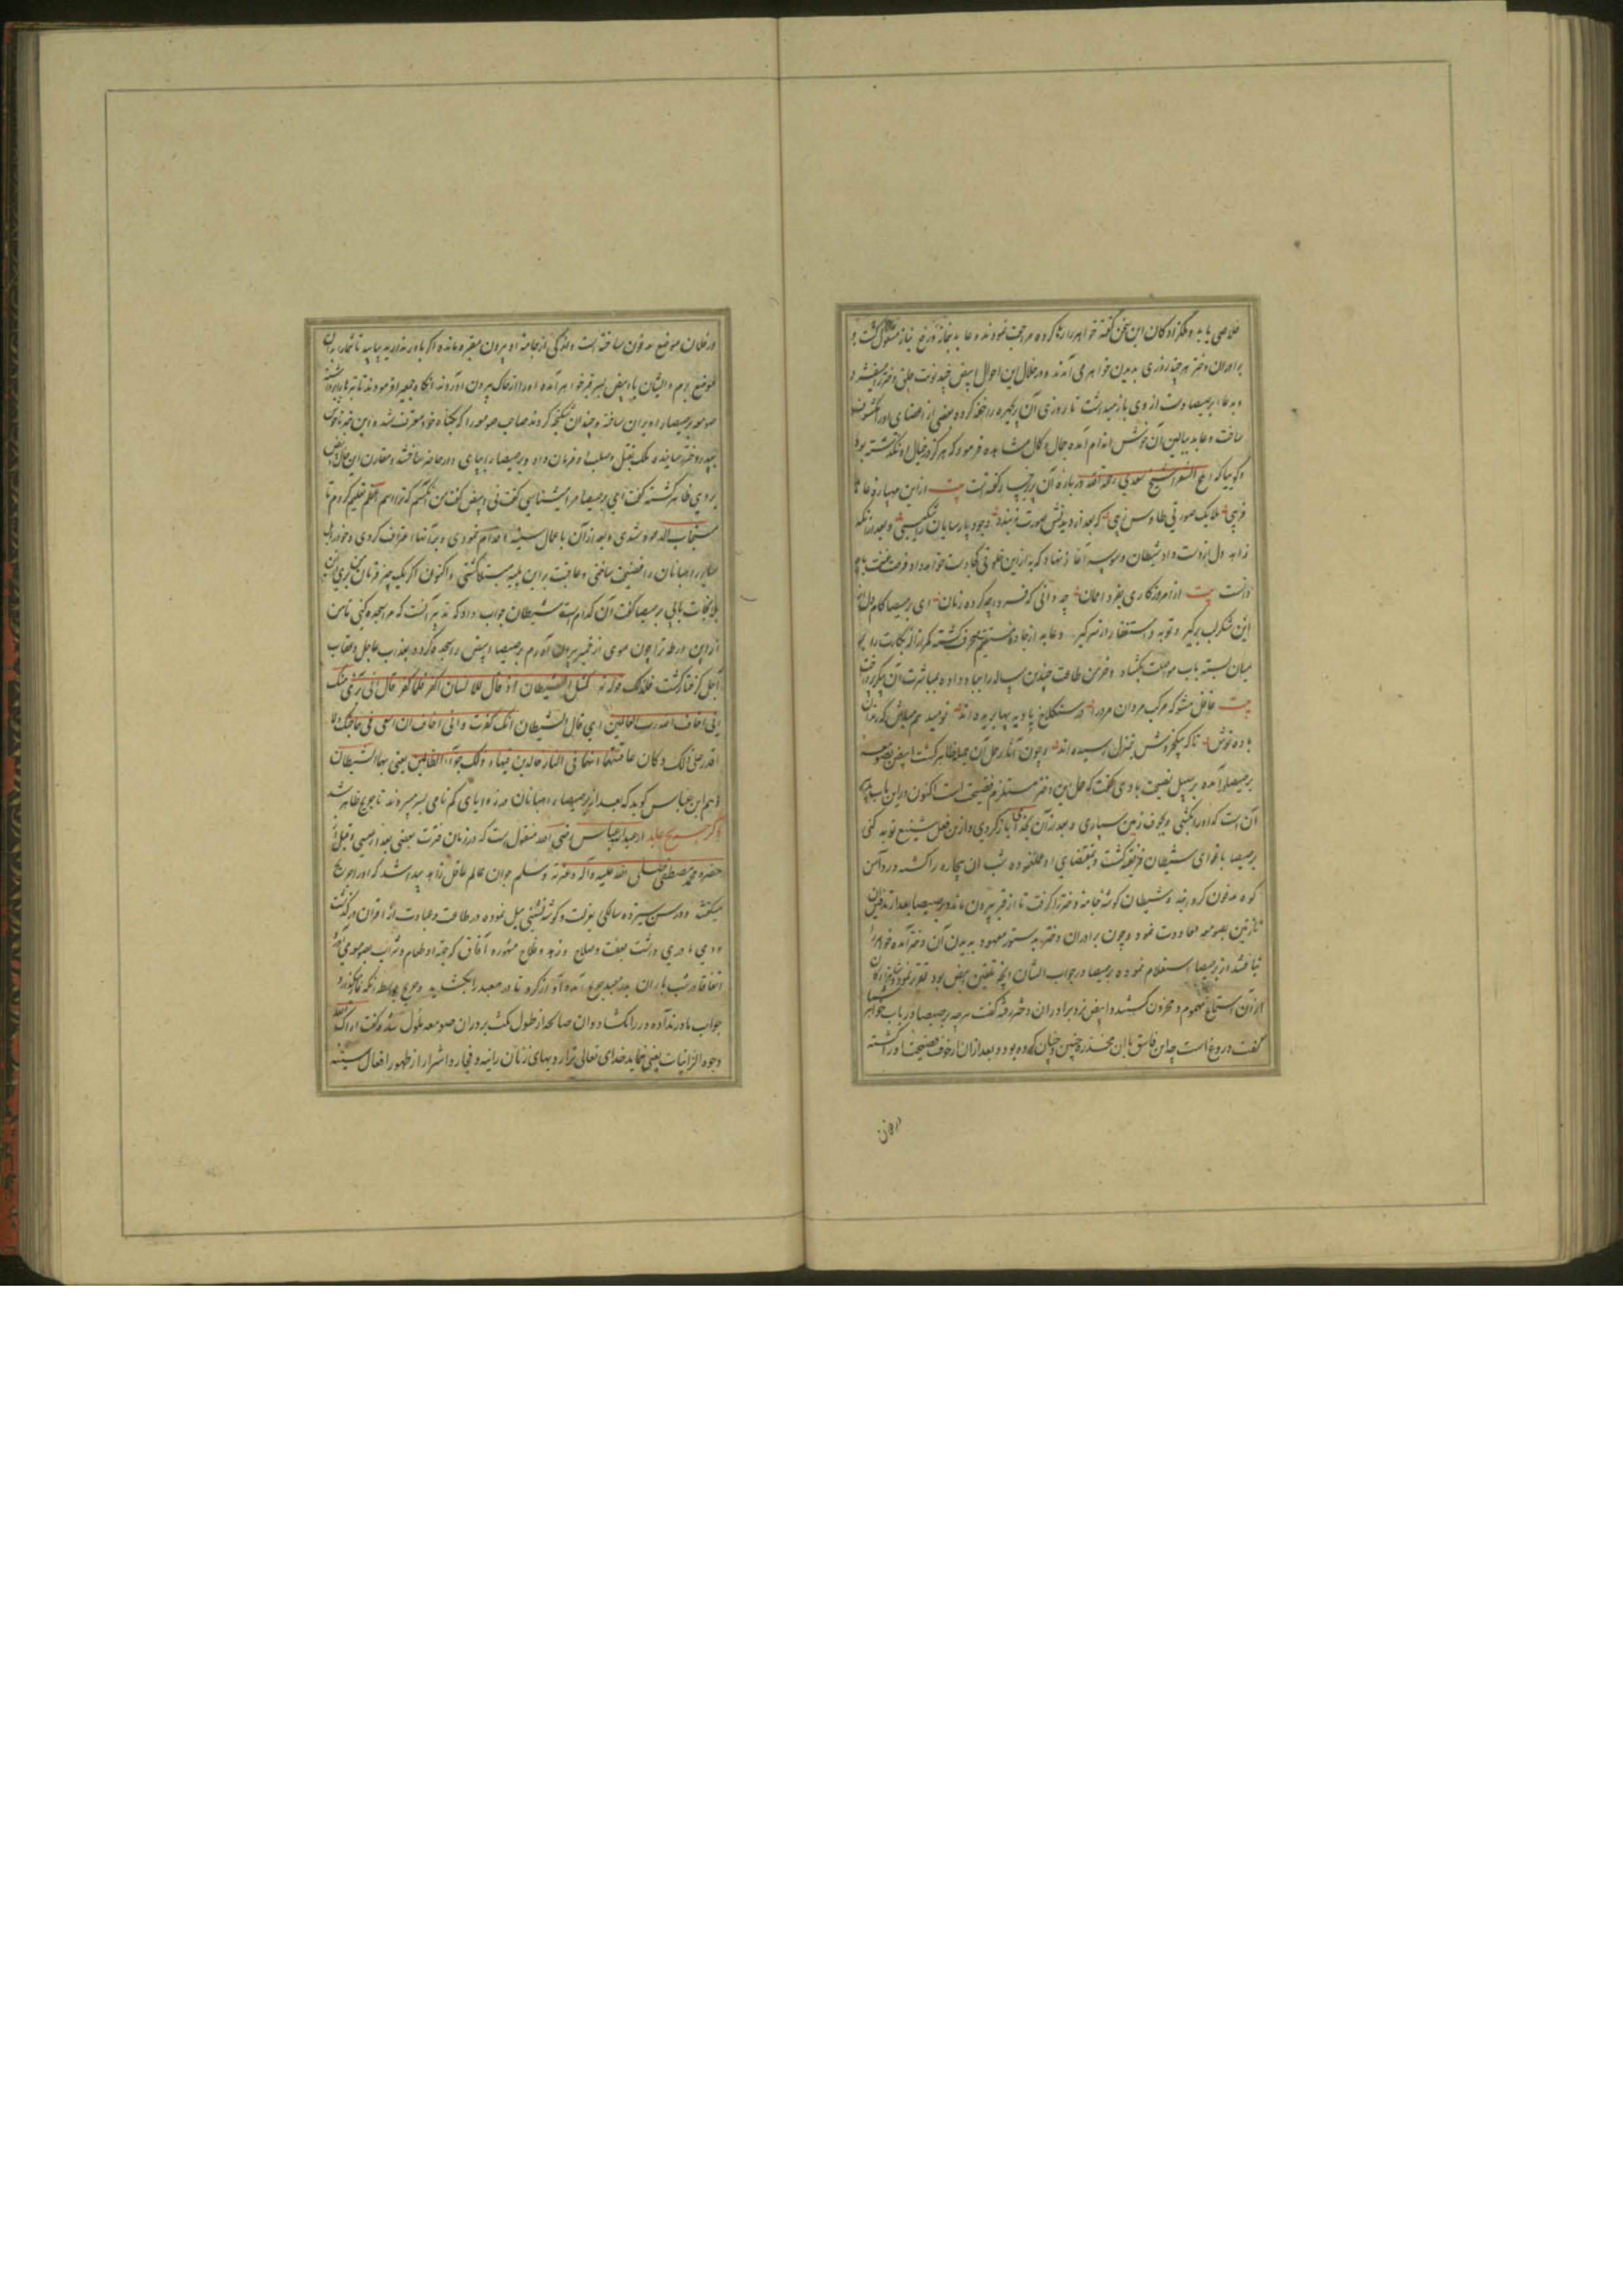 خلاصی یابد و ملکزادکان این سخن گفته خواهر را رها کرده مراجعت نمودند و عابد بنماز و عرض نیاز مشغول گشت و
برادران دختر هر چند روزی بدیدن خواهر می آمدند و در خلال این احوال ابیض چند نوبت حلق دختر
و بدعاء برصیصا دست از وی باز میداشت تا روزی آن را کرده بعضی از اعضای او را مکشوف
ساخت و عابد ببالین آن خوش اندام آمده جمال و کمال مشاهده فرمود که هرگز در خیال او نگذشته بود
و گوییا که الشیخ سعدی رحمة الله درباره آن گفته است بیت ازین مه پاره عابد
فریبی ملایک صورتی طاوس زیبی که بعد از دیدنش صورت نبندد وجود پارسایان را شکیبی و بعد از آنکه
زاهد دل از دست داد شیطان وسوسه آغاز نهاد که به ازین خلوتی کجا دست خواهد داد فرصت غنیمت باید
دانست بیت از امروز کاری بفردا ممان چه دانی که فردا چه گردد زمان ای برصیصا کام دل از
این شکرلب برگیر و توبه و استغفار از سر گیر و عابد از جاده مستقیم منحرف گشته
میان بسته باب مواصلت بگشاد و خرمن طاعت چندین ساله را بباد داده بمباشرت آن
بیت غافل مشو که مرکب مردان مرد را در سنگلاخ بادیه پیها بریده اند نومید هم مباش که رندان
باده نوش ناگه بیک خروش بمنزل رسیده اند و چون آثار حمل آن جمیله ظاهر گشت ابیض بصومعه
برصیصا آمده بر سبیل نصیحت با وی گفت که حمل این دختر مستلزم فضیحت است اکنون در این باب
آن است که او را بکشی و بجوف زمین سپاری و بعد از آن بخدای باز گردی و از این فعل شنیع توبه کنی
برصیصا باغوای شیطان فریفته گشت و بمقتضای او عمل نموده شب آن بیچاره را کشته در دامن
کوه مدفون کرد شیطان گوشه جامه دختر را گرفت تا از قبر بیرون ماند و برصیصا بعد از تدفین
نازنین بصومعه معاودت نمود و چون برادران دختر بدستور معهود بدیدن آن دختر آمده خواهر را
نیافتند از برصیصا استعلام نموده برصیصا در جواب ایشان آنچه تلقین ابیض بود تقریر نمود
از آن استماع مهموم و محزون گشتند و ابیض نزد برادران دختر رفته گفت هر چه برصیصا در باب خواهر شما
گفت دروغ است چه این فاسق با آن مخدره چنین و چنان کرده بود و بعد از آن از خوف فضیحت او را کشته
درفلان
در فلان موضع مدفون ساخته است و اندکی از جامه او بیرون مقبره مانده اگر باور ندارید بیایید تا شما را بدان
موضع برم و ایشان با ابیض بسر قبر خواهر آمده او را از خاک بیرون آوردند
صومعه برصیصا را ویران ساخته و چندان شکنجه کردند صاحب صومعه را که بگناه خود معترف شده این خبر
بپدر دختر رسانیدند ملک بقتل و صلب او فرمان داد و برصیصا را پای دار حاضر ساختند مقارن این حال ابیض
بروی ظاهر گشته گفت ای برصیصا مرا میشناسی گفت نی ابیض گفت من آنکسم که ترا اسم اعظم تعلیم کردم تا
مستجاب الدعوه شدی و بعد از آن باعمال سیئه اقدام نمودی و بر آنها اعتراف کردی و خود را
و رهبانان را فضیحت ساختی و عاقبت براین بلیه مبتلا گشتی و اکنون اگر یک چیز فرمان من بری از این
بلا نجات یابی برصیصا گفت آن کدام است شیطان جواب داد که تدبیر آنست که مرا سجده کنی تا من
از این ورطه ترا چون موی از خمیر بیرون آورم برصیصا ابیض را سجده کرده بعذاب عاجل و عقاب
آجل گرفتار گشت فذلک قوله تعالی کمثل الشیطان اذ قال للانسان اکفر فلما کفر قال انی بریء منک
انی اخاف الله رب العالمین ای قال الشیطان انک کفرت و انی اخاف الله
اقدر علی ذلک و کان عاقبتهما انهما فی النار خالدین فیها و ذلک جزاء الظالمین یعنی بهما الشیطان
و هم ابن عباس گوید که بعد از برصیصا رهبانان در زوایای گم نامی بسر میبردند تا جریج ظاهر شد
ذکر جریج عابد از عبدالله عباس رضی الله منقول است که در زمان فترت یعنی بعد از عیسی و قبل از
حضرت محمد مصطفی صلی الله علیه و آله و عترته و سلم جوان عالم عاقل زاهد پیدا شد که او را جریج
میگفتند و در سن سیزده سالگی بعزلت و گوشه نشینی میل نموده در طاعت و عبادت از اقران درگذشت
و وی مادری داشت بعفت و صلاح و زهد و فلاح مشهوره آفاق که جهة او طعام و شراب بصومعه می آورد
اتفاقا در شب باران بدر معبد جریج آمده آواز کرد تا در معبد را بگشاید و جریج بواسطه آنکه نماز میگذارد
جواب مادر نداده در را نگشاد و آن صالحه از طول مکث بر در آن صومعه ملول شده گفت اراک الله
وجوه الزانیات یعنی بنماید خدای تعالی ترا رویهای زنان زانیه و فجار و اشرار از ظهور افعال سیئه